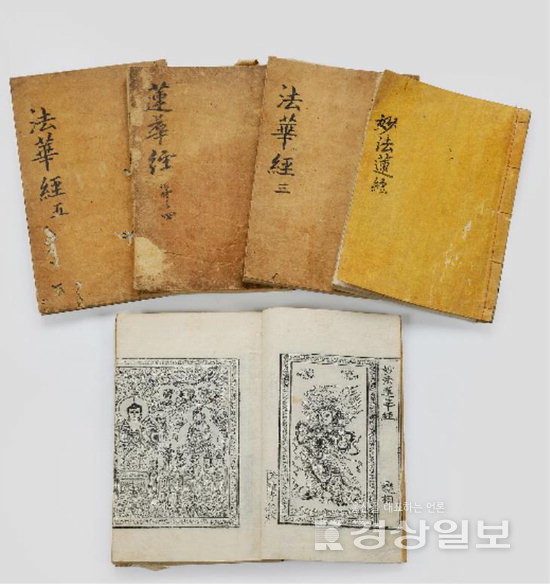 法華經五
蓮華經
法華經三
妙法蓮經
妙法蓮華經
대표하는 언론
경상일보